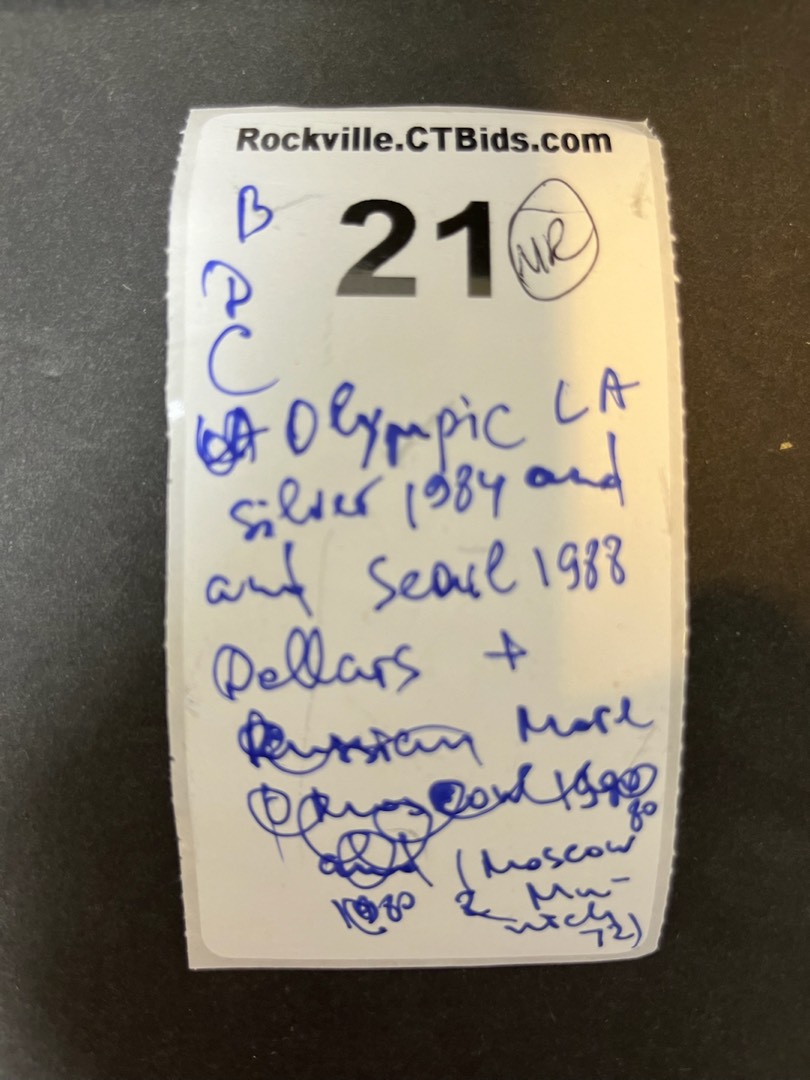 Rockville.CTBids.com
B 21 MR
D
C
Olympic LA
silver 1984 and
and Seoul 1988
Dollars +
Russian More
1980
80
and (Moscow
1980 & Mu-
nich
72)